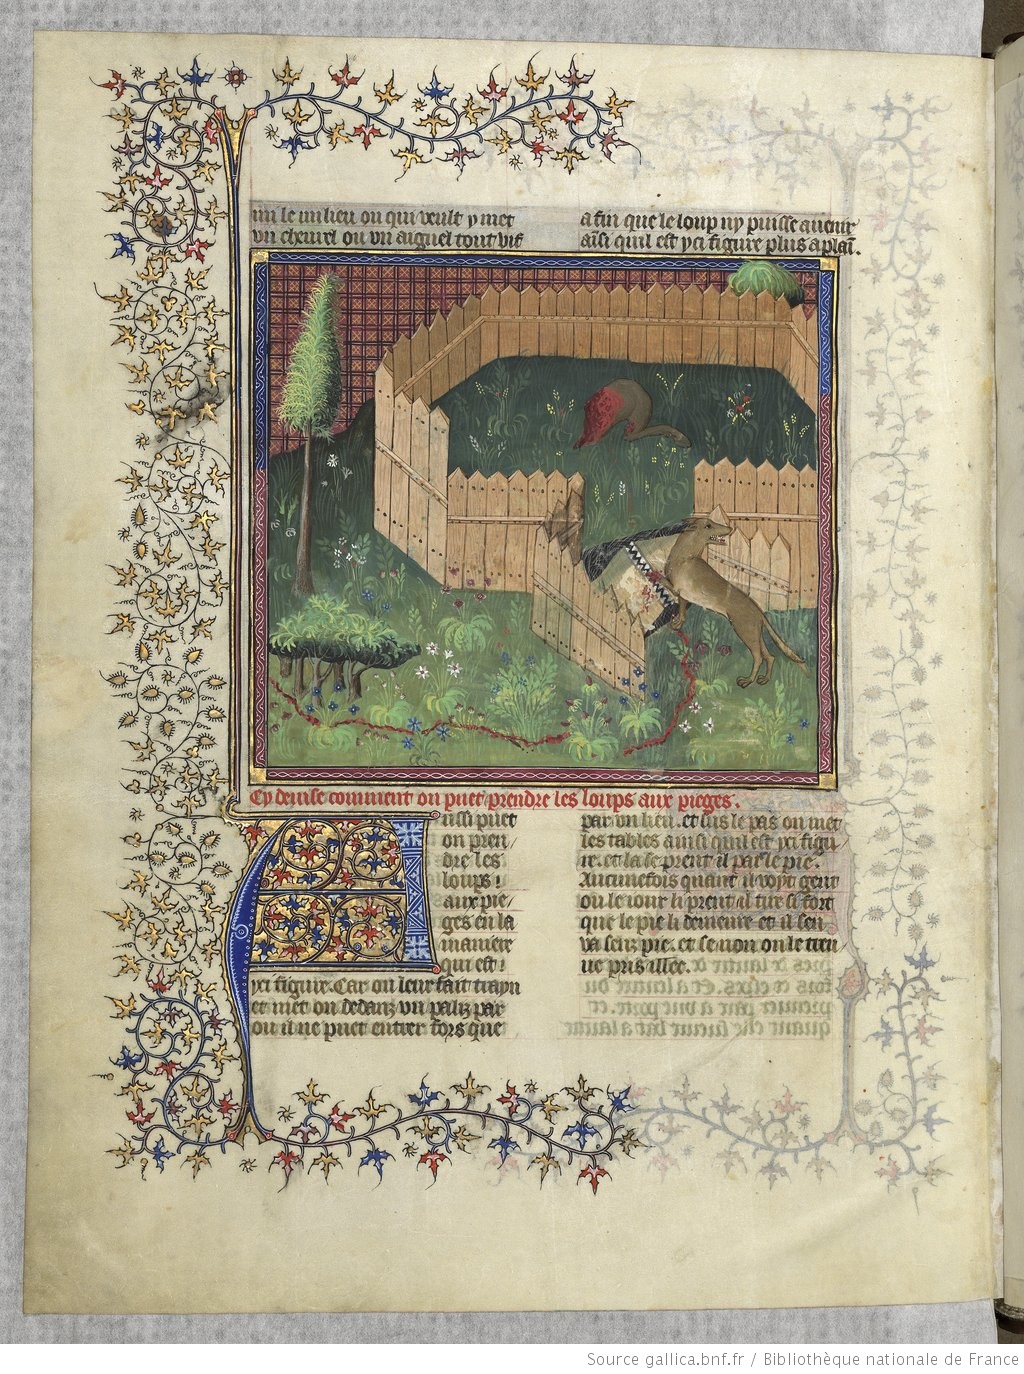 mi le milieu ou qui veult y met
vn cheurel ou vn aignel tout vif
a fin que le loup ny puisse auenir
aīsi quil est yci figure plus a plaī.
Cy deuise comment on puet prendre les loups aux pieges.
Aussi puet
on pren/
dre les
loups
aux pie/
ges en la
maniere
qui est
yci figure. Car on leur fait trayn
et met on dedanz vn paliz par
ou il ne puet entrer fors que
par vn lieu. et sus le pas on met
les tables ainsi quil est yci figu
re. et la se prent il par le pie.
Aucunefois quant il voyt gent
ou le iour li prent il tire si fort
que le pie li demeure et il sen
va senz pie. et se non on le treu
ue pris illec.
Source gallica.bnf.fr / Bibliothèque nationale de France